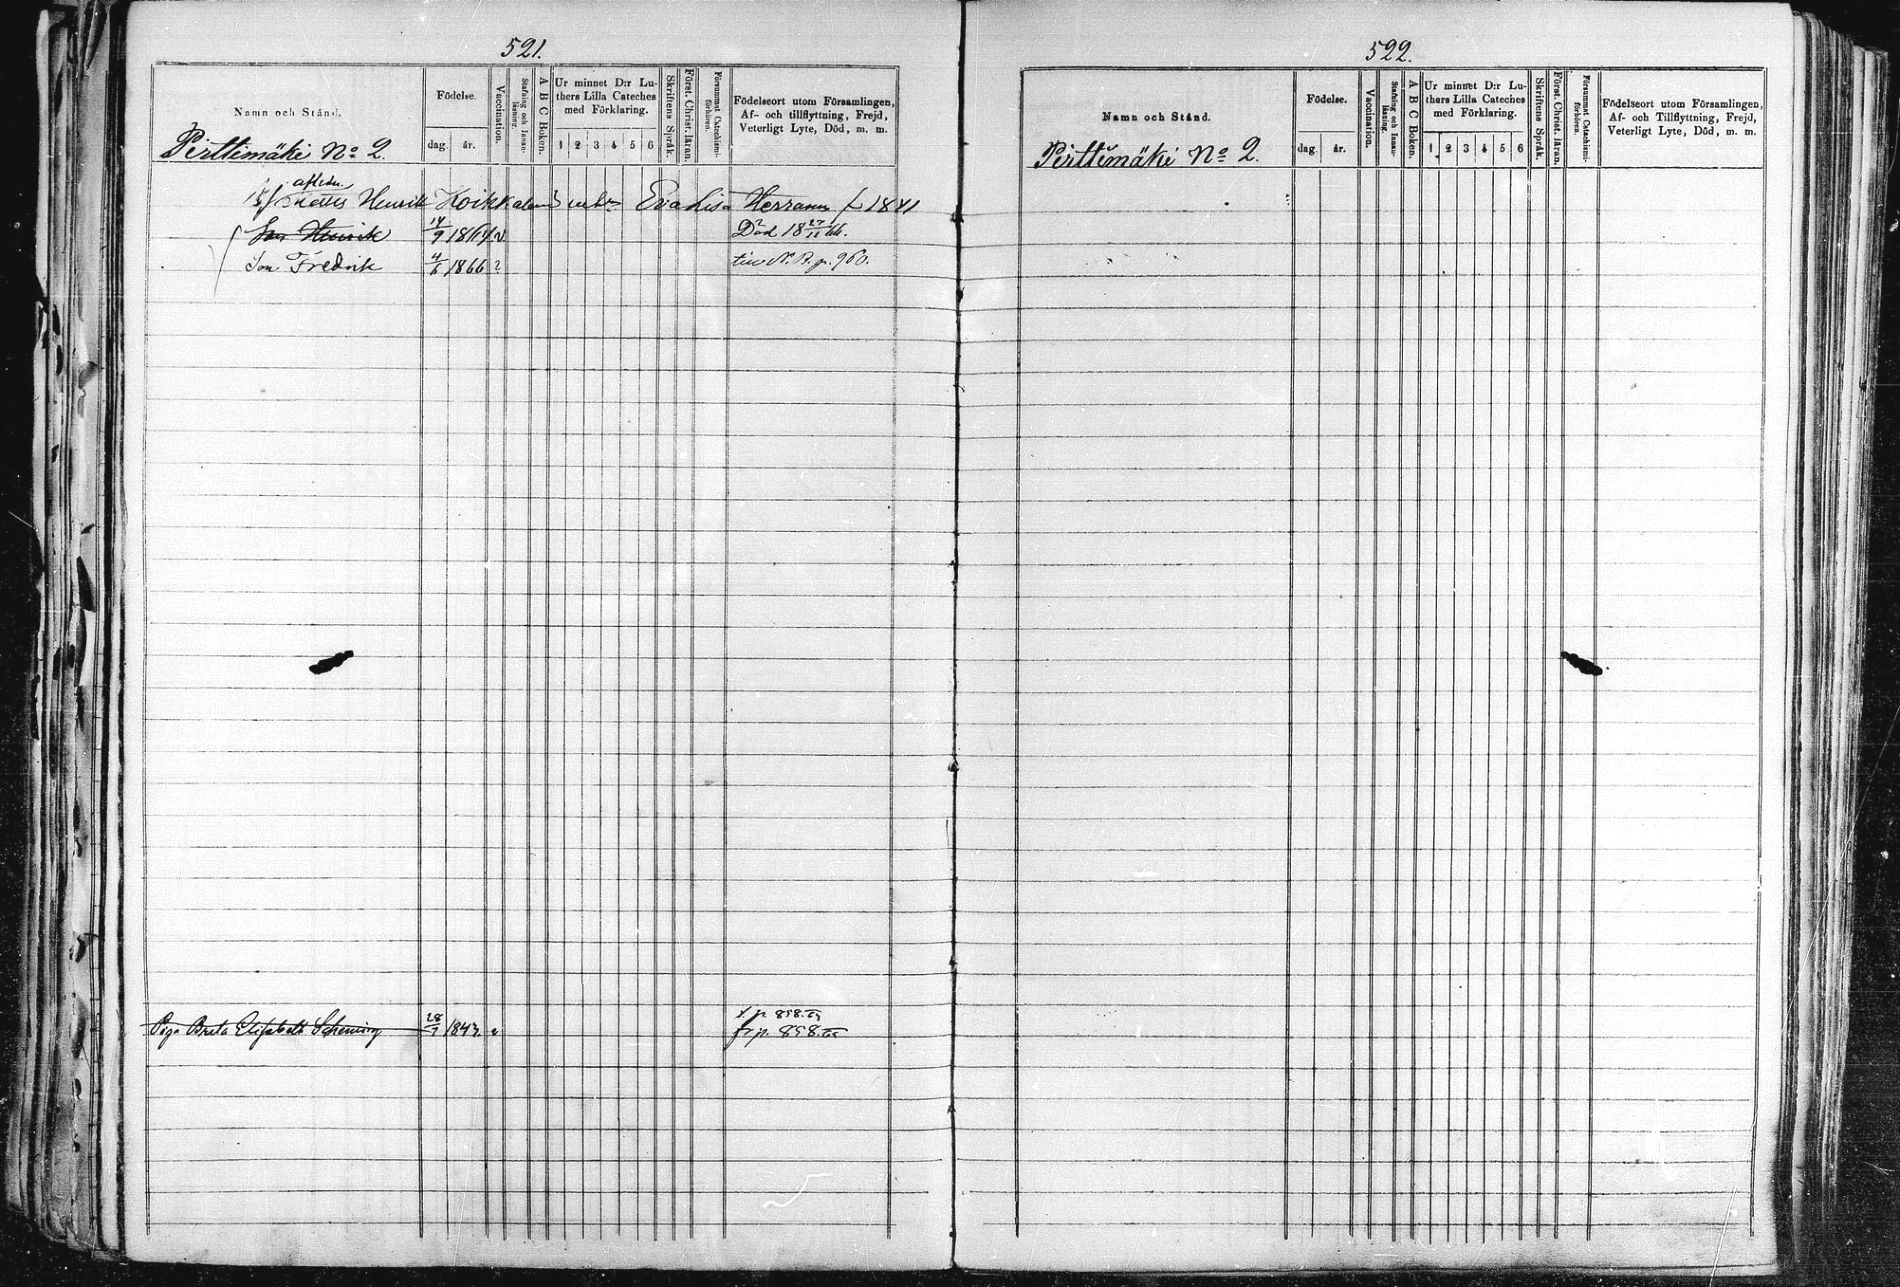 521.
Namn och Stånd.
Födelse.
dag. år.
Vaccination.
Stafning och Innan-läsning.
A B C Boken.
Ur minnet D:r Lu-
thers Lilla Cateches
med Förklaring.
1 2 3 4 5 6
Skriftens Språk.
Först. Christ. läran.
Försummat Catechismi-förhören.
Födelseort utom Församlingen,
Af- och tillflyttning, Frejd,
Veterligt Lyte, Död, m. m.
Pirttimäki No 2.
afledn.
Henrik Koikkalain Eva Lisa Herranen 1841
Son Henrik 14/9 1864 v Död 18 27/11 66.
Son Fredrik 4/6 1866 v N. B. p. 960.
x p. 858.
Piga Breta Elisabeth Schening 28/7 1843. v fr p. 858.
522.
Namn och Stånd.
Födelse.
dag. år.
Vaccination.
Stafning och Innan-läsning.
A B C Boken.
Ur minnet D:r Lu-
thers Lilla Cateches
med Förklaring.
1 2 3 4 5 6
Skriftens Språk.
Först. Christ. läran.
Försummat Catechismi-förhören.
Födelseort utom Församlingen,
Af- och Tillflyttning, Frejd,
Veterligt Lyte, Död, m. m.
Pirttimäki No 2.